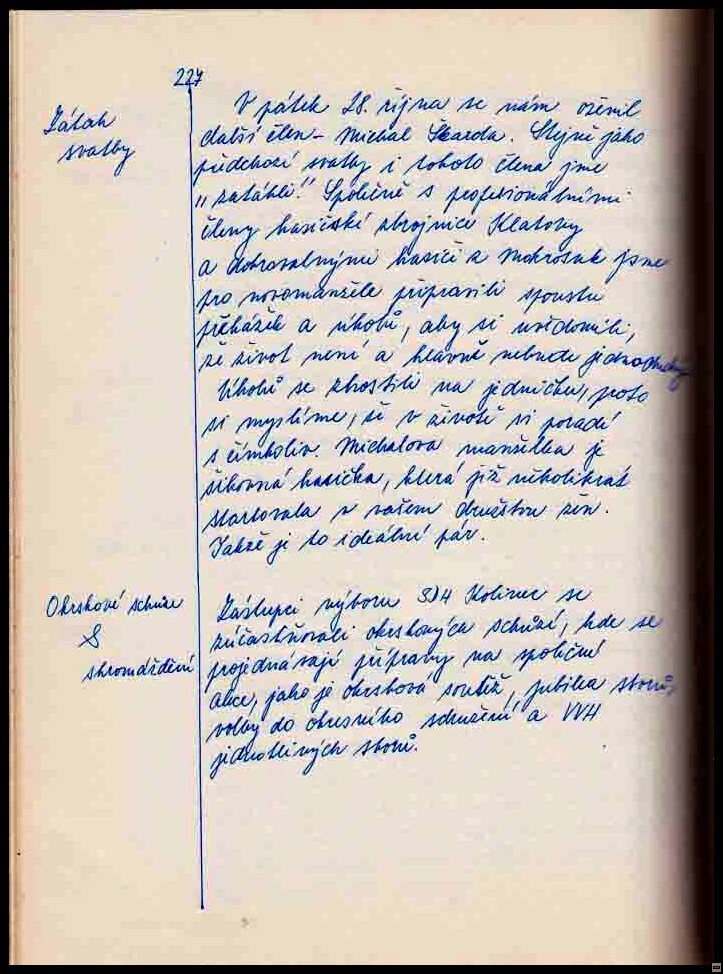 227
Zátah
svatby
V pátek 28. října se nám oženil
další člen - Michal Škarda. Stejně jako
předchozí svatby i tohoto člena jme
"zatáhli." Společně s profesionálními
členy hasičské zbrojnice Klatovy
a dobrovolnými hasiči z Mokrosuk jsme
pro novomanžele připravili spoustu
překážek a úkolů, aby si uvědomili,
že život není a hlavně nebude jednoduchý
Úkolů se zhostili na jedničku, proto
si myslíme, že v životě si poradí
s čímkoliv. Michalova manželka je
šikovná hasička, která již několikrát
startovala v našem družstvu žen.
Takže je to ideální pár.
Okrskové schůze
&
shromáždění
Zástupci výboru SDH Kolinec se
zúčastňovali okrskových schůzí, kde se
projednávají přípravy na společné
akce, jako je okrsková soutěž, jubilea sborů,
volby do okresního sdružení a VVH
jednotlivých sborů.